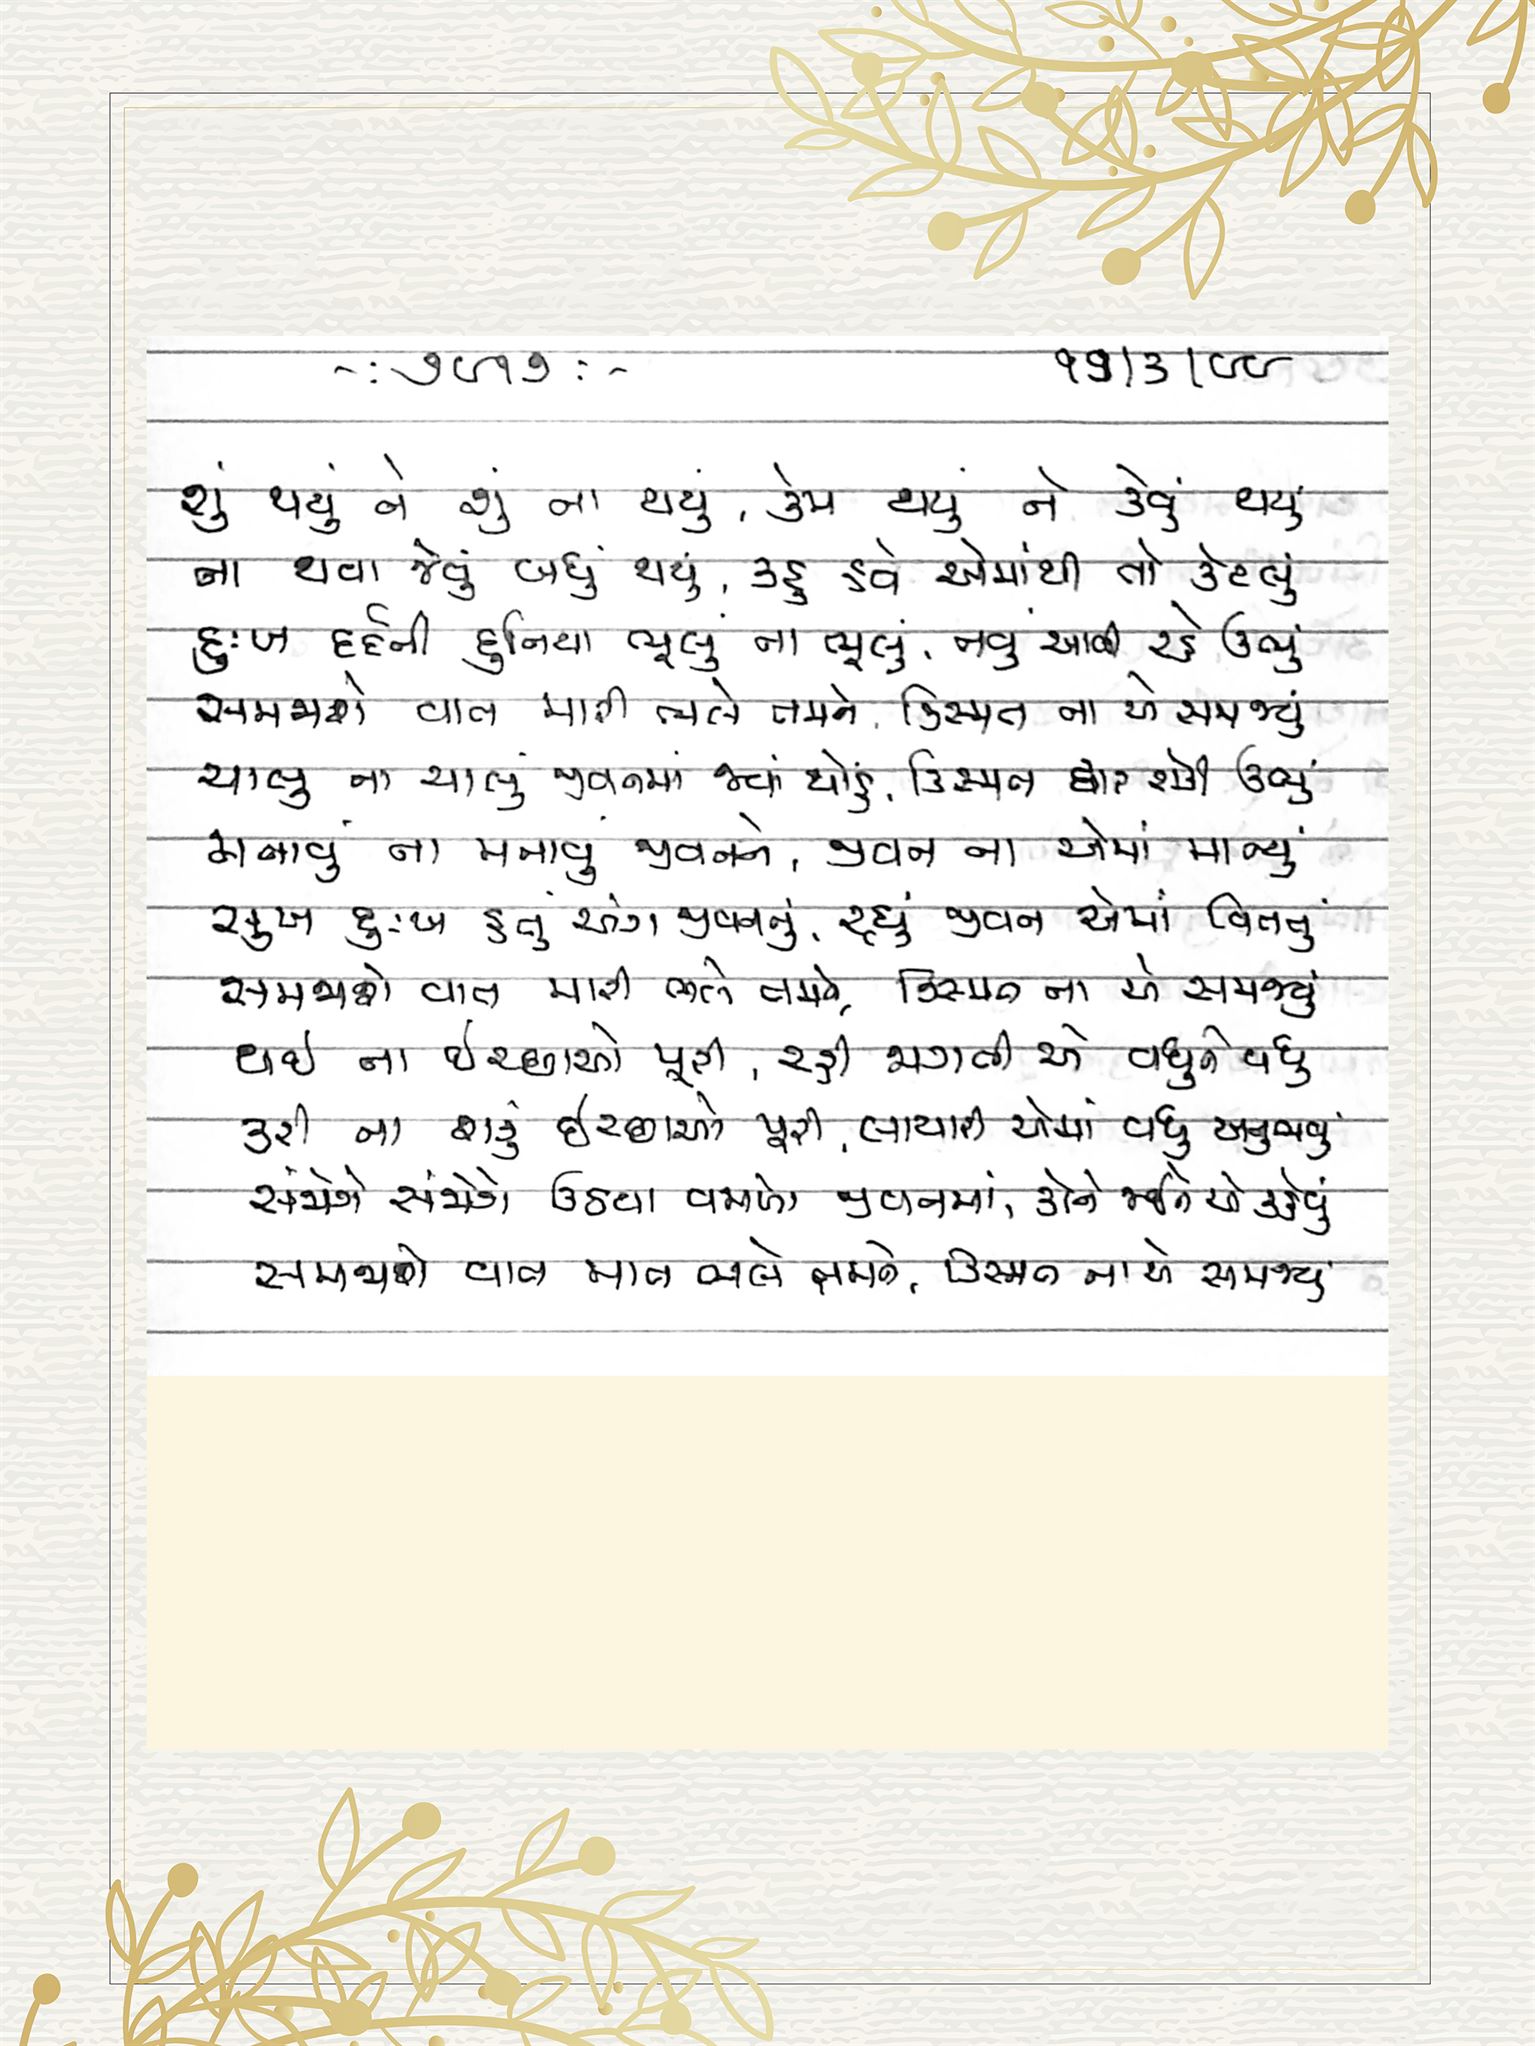 -: ૭૯૧૭ :-
૧૭/૩/૯૯
શું થયું ને શું ના થયું, કેમ થયું ને કેવું થયું
ના થવા જેવું બધું થયું, કહું હવે એમાંથી તો કેટલું
દુઃખ દર્દની દુનિયા ભૂલું ના ભૂલું, નવું આવી રહે ઉભું
સમજાશે વાત મારી ભલે તમને, કિસ્મત ના એ સમજ્યું
ચાલુ ના ચાલું જીવનમાં જ્યાં થોડું, કિસ્મત રોકી ઉભું
મનાવું ના મનાવું જીવનને, જીવન ના એમાં માન્યું
સુખ દુઃખ હતું અંગ જીવનનું, રહ્યું જીવન એમાં વિતતું
સમજાશે વાત મારી ભલે તમને, કિસ્મત ના એ સમજ્યું
થઈ ના ઈચ્છાઓ પૂરી, રહી જાગતી એ વધુને વધુ
કરી ના શકું ઈચ્છાઓ પૂરી, લાચારી એમાં વધુ અનુભવું
સંજોગો સંજોગો ઉઠવા વમળો જીવનમાં, કોને જઈને એ કહેવું
સમજાશે વાત માત ભલે તમને, કિસ્મત ના એ સમજ્યું